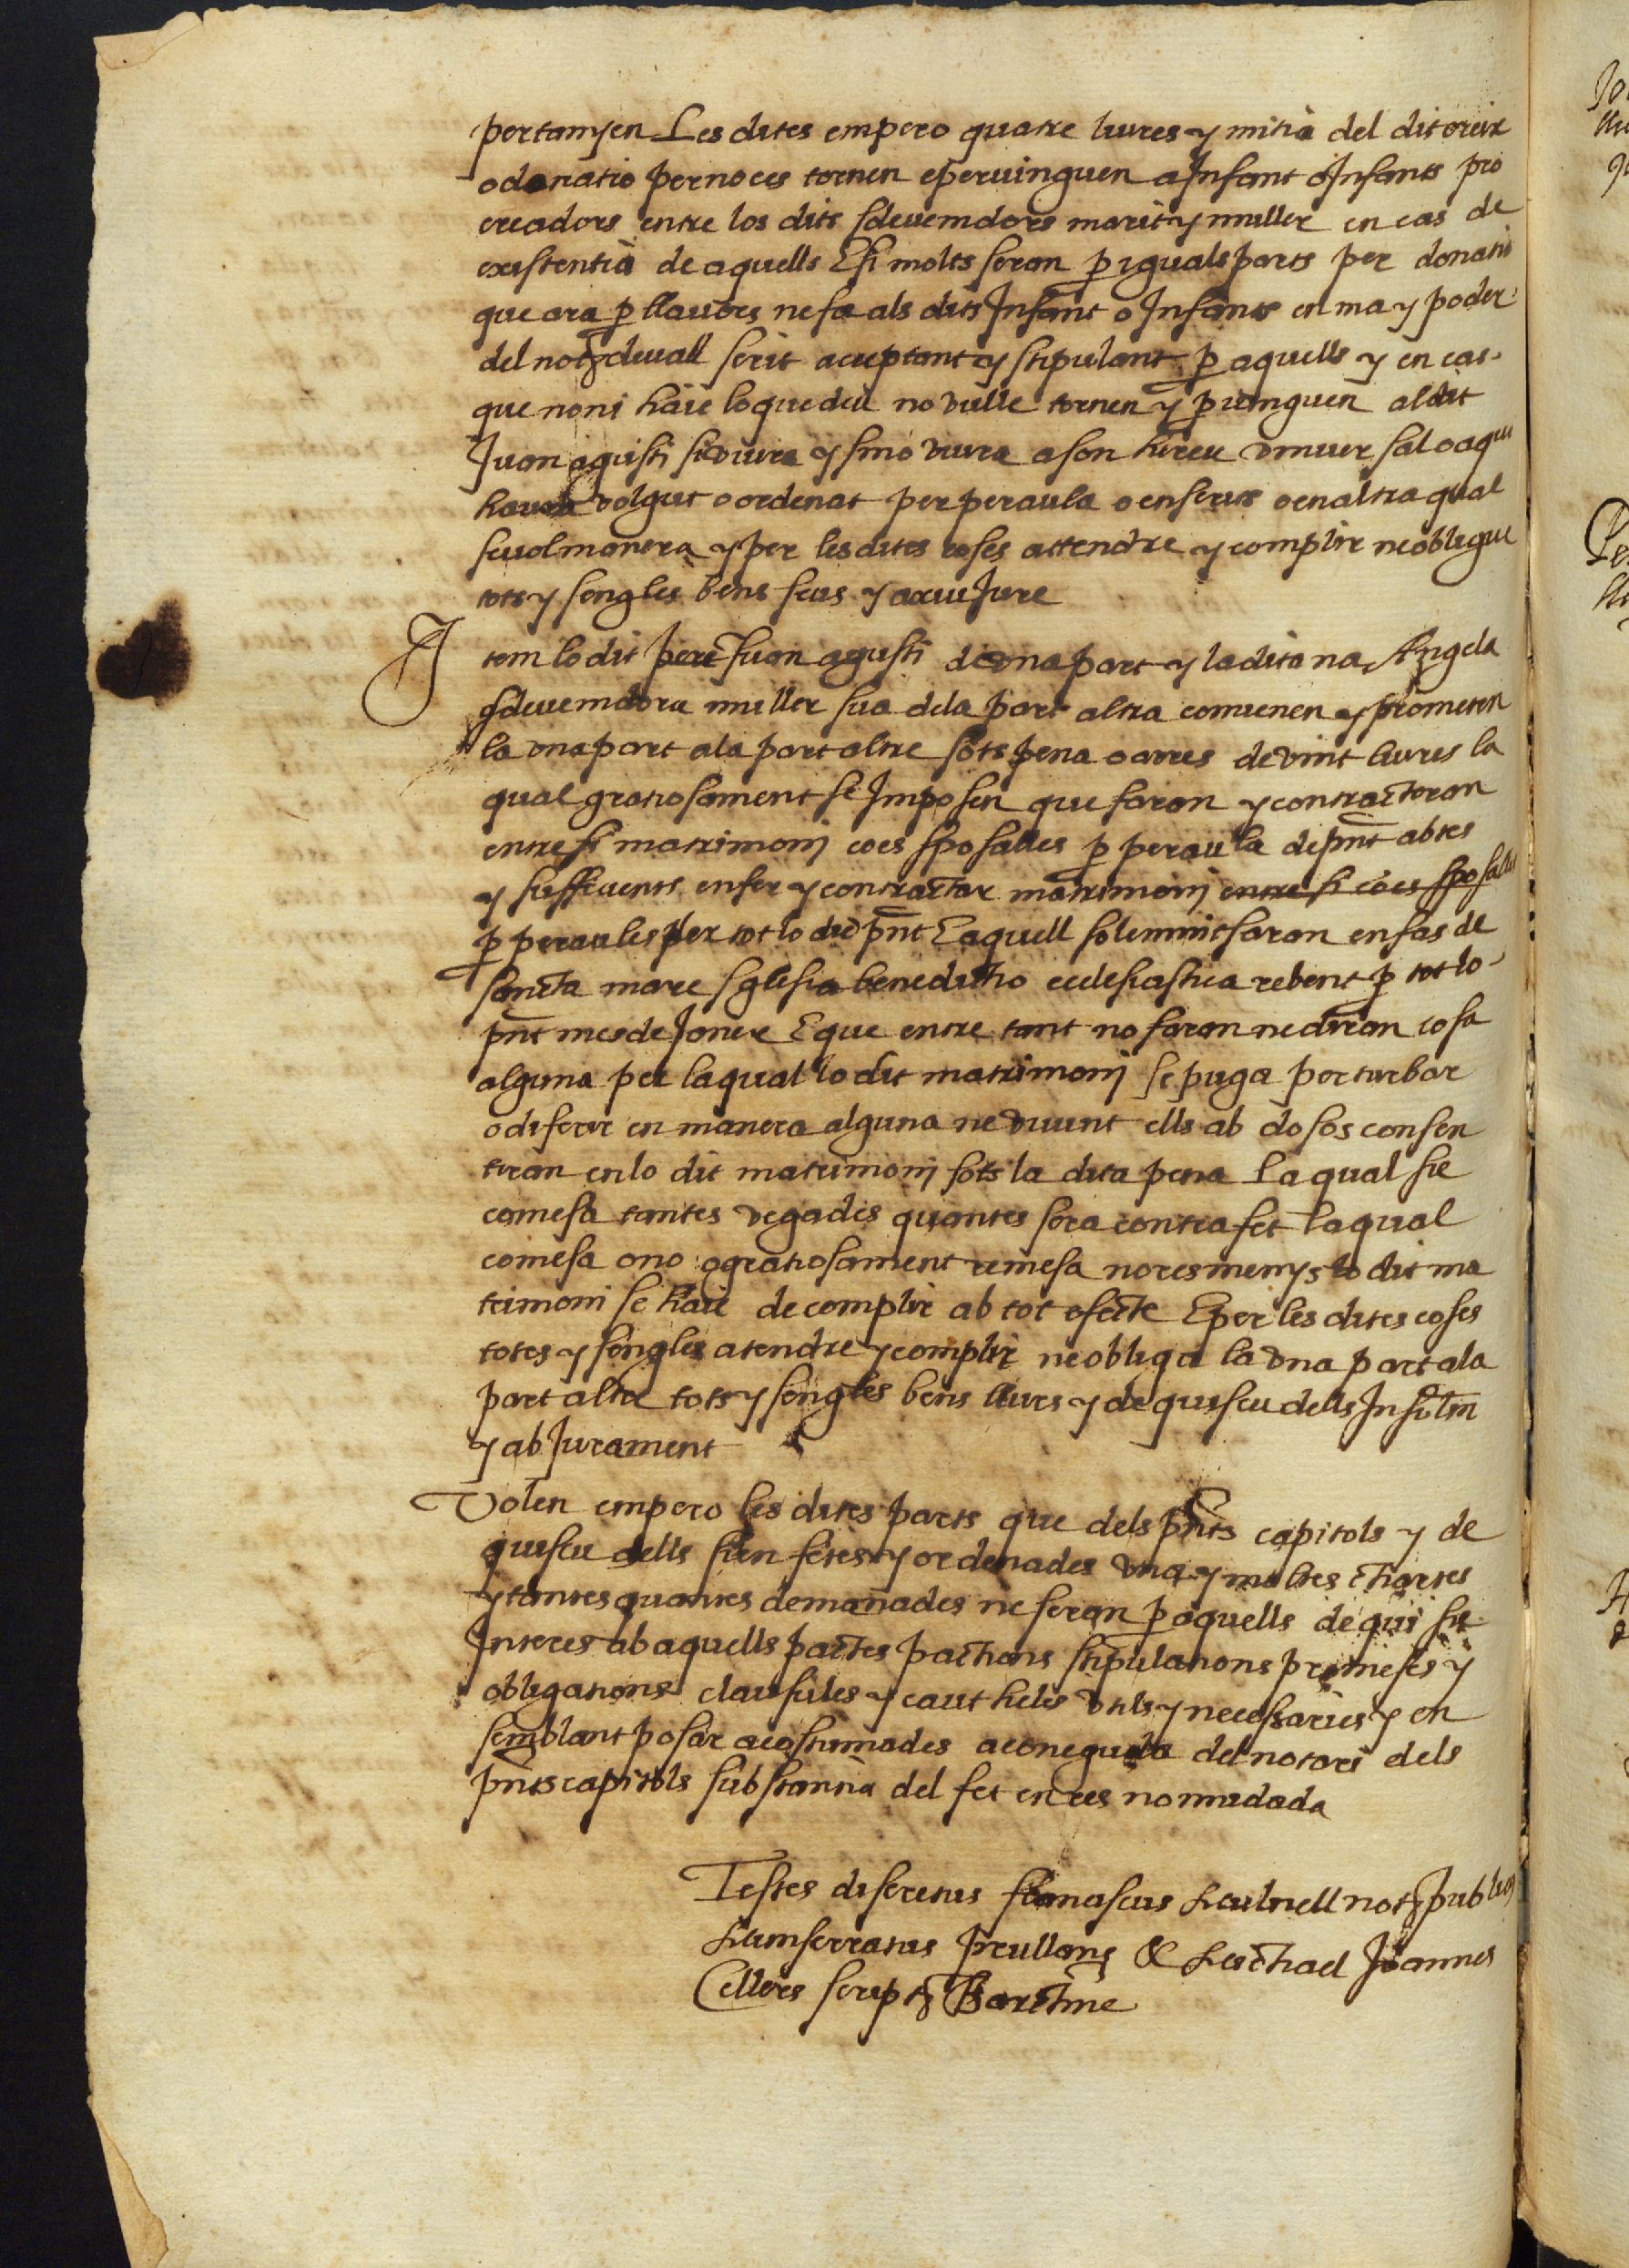 pertanyen Les dites empero quatre liures y mitia del dit creix
o donatio per noces tornen e peruinguen a Infant o Infants pro
creadors entre los dits sdeuenidors marit y muller en cas de
existentia de aquells E si molts seran p iguals parts per donatio
que ara p llauors ne fa als dits Infant o Infants en ma y poder
del not deuall scrit acceptant y stipulant p aquells y en cas
que noni haie lo que deu no vulle tornen y p uinguen al dit
Juan agusti si viura y sino viura a son hereu vniuersal o a qui
haura volgut o ordenat per peraula o en scrits o en altra qual
seuol manera y per les dites coses attendre y complir ne obligue
tots y sengles bens seus y axiu Jure
Item lo dit pere Juan agusti de vna part y la dita na Angela
sdeuenidora muller sua de la part altra conuenen y prometen
la vna part a la part altre sots pena o arres de vint liures la
qual gratiosament se Imposen que faran y contractaran
entre si matrimonj coes sposalles p peraula de pnt abtes
y sufficients en fer y contractar matrimonj entre si coes sposalles
p peraules per tot lo die pnt E aquell solemnitsaran en fas de
sancta mare sglesia benedictio ecclesiastica rebent p tot lo
pnt mes de Janer E que entre tant no faran ne diran cosa
alguna per la qual lo dit matrimonj se puga perturbar
o diferir en manera alguna ne viuint ells ab dosos consen
tiran en lo dit matrimonj sots la dita pena La qual sie
comesa tantes vegades quantes sera contrafet la qual
comesa o no o gratiosament remesa no res menys lo dit ma
trimoni se haie de complir ab tot efecte E per les dites coses
totes y sengles atendre y complir ne obliga la vna part a la
part altre tots y sengles bens llurs y de quiscu dells In solm
y ab Jurament
Volen empero les dites parts que dels pnts capitols y de
quiscu dells sien fetes y ordenades vna y moltes chartes
y tantes quantes demanades ne seran p aquells de qui sie
Interes ab aquells pactes pactions stipulations promeses y
obligations clausules y cautheles vtils y necessaries y en
semblant posar acostumades a coneguda del notari dels
pnts capitols substantia del fet en res no mudada
Testes discretus not publicus
& Joannes
Cellers script Barchne